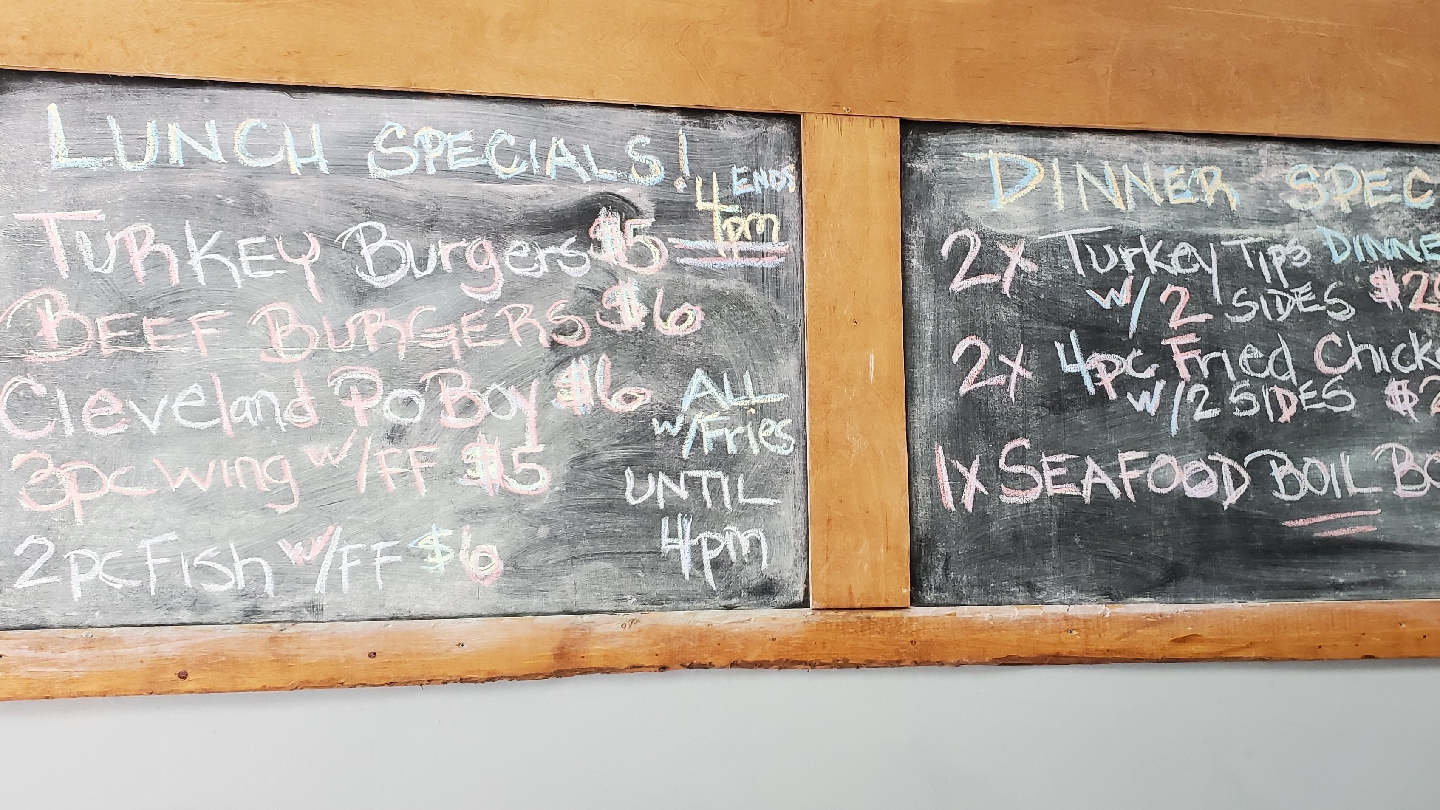 LUNCH SPECIALS!
ENDS
4pm
TURKEY Burgers $5
BEEF BURGERS $6
Cleveland Po Boy $6
3pc wing w/FF $5
2pc Fish w/FF $6
ALL
w/Fries
UNTIL
4pm
DINNER SPEC
2x Turkey Tips DINNE
w/ 2 SIDES $2
2x 4pc Fried Chick
w/2 SIDES $2
1x SEAFOOD BOIL BO